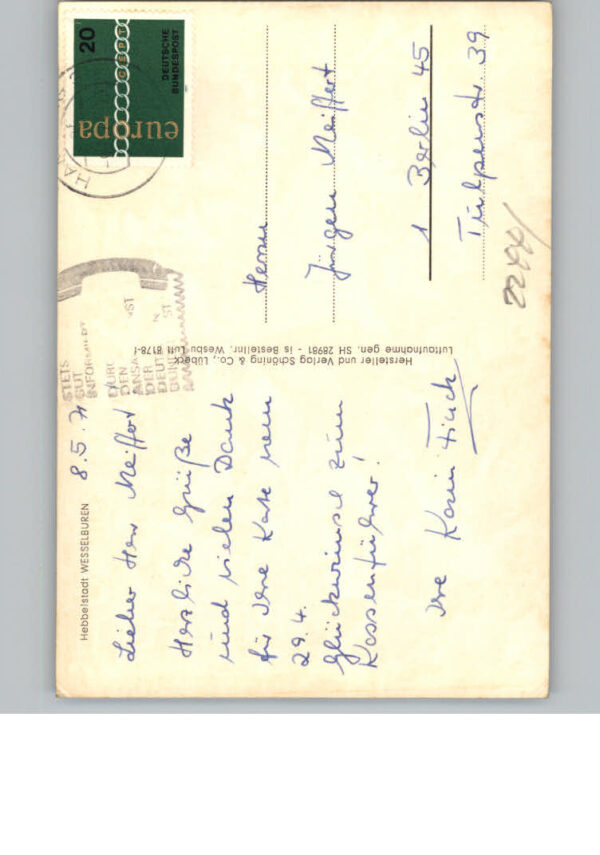 Hebbelstadt WESSELBUREN
8.5.71
Lieber Herr Meiffert
Herzliche Grüße
und vielen Dank
für Ihre Karte vom
29.4.
Glückwunsch zum
Kassenführer!
Ihre Karin
Hersteller und Verlag Schöning & Co., Lübeck
Luftaufnahme gen. SH 28981 - is Bestellnr. Wesbu Luft 8178-f
STETS
GUT
INFORMIERT
DEN
DER
20
CEPT
DEUTSCHE
BUNDESPOST
europa
Herrn
Jürgen Meiffert
1 Berlin 45
Tulpenstr. 39